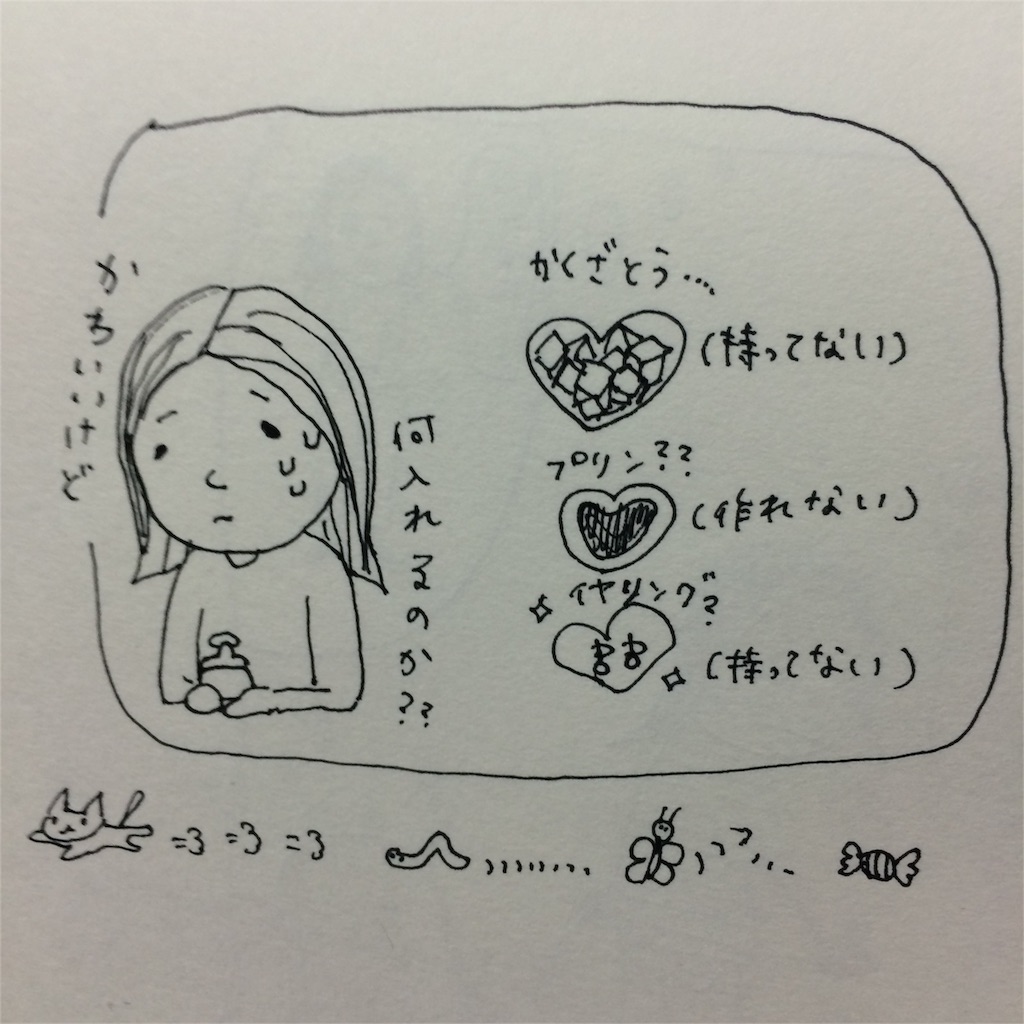 かわいいけど
何入れるのか??
かくざとう...
(持ってない)
プリン??
(作れない)
イヤリング?
(持ってない)
=3 =3 =3